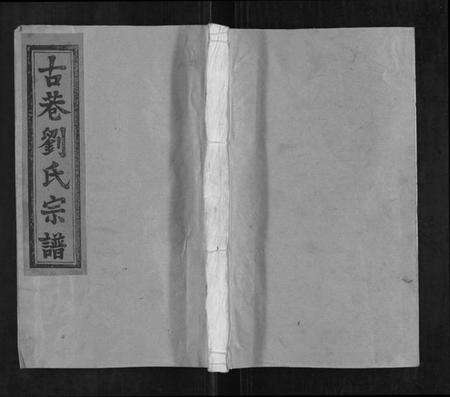 古巷劉氏宗譜